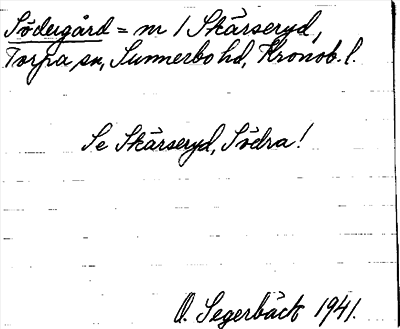 Södergård = nr 1 Skärseryd,
Torpa sn, Sunnerbo hd, Kronob. l.
Se Skärseryd, Södra!
O. Segerbäck 1941.